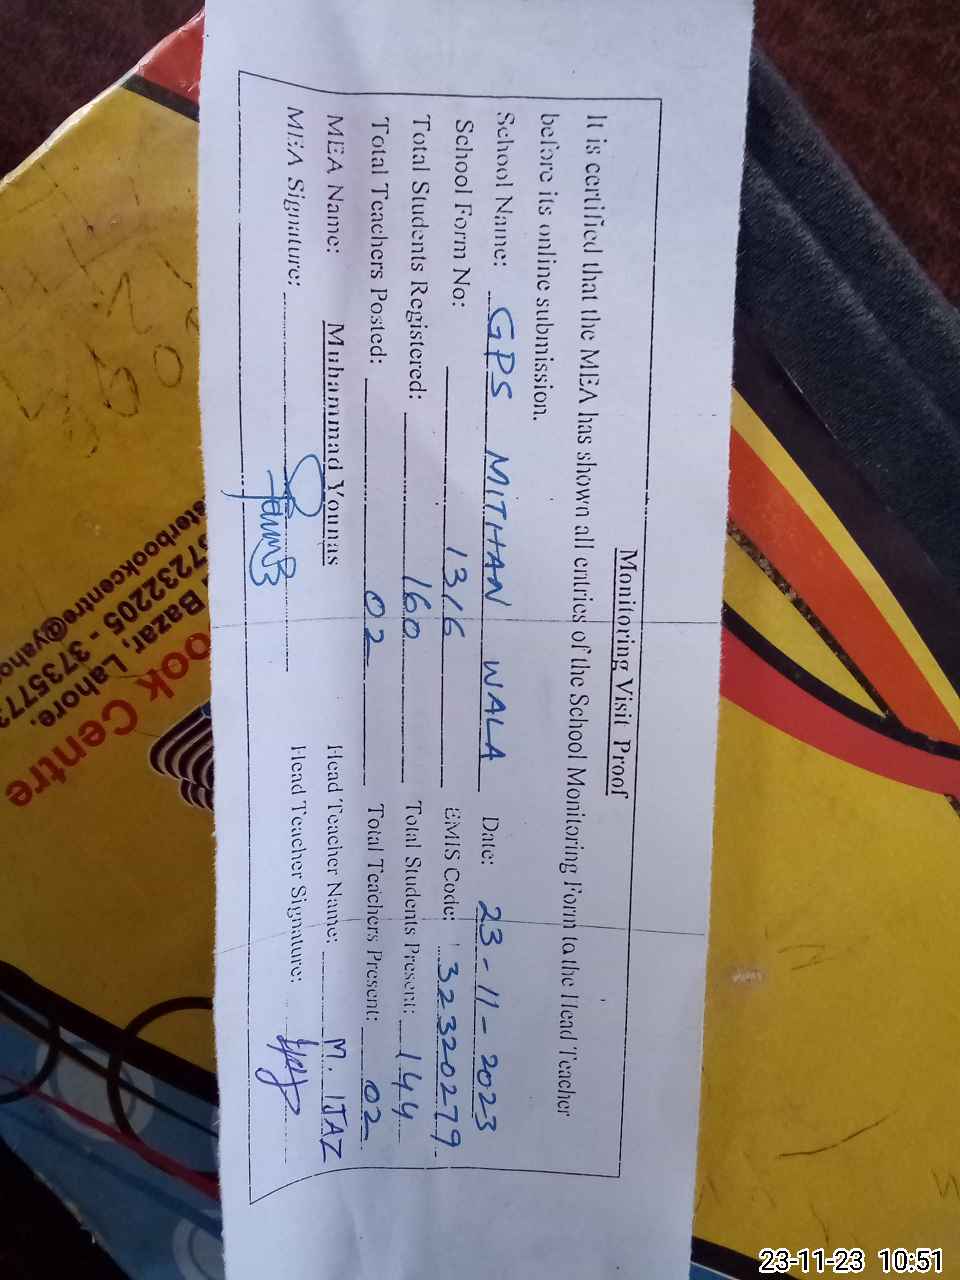 Monitoring Visit Proof
It is certified that the MEA has shown all entries of the School Monitoring Form to the Head Teacher
before its online submission.
School Name: GPS MITHAN WALA Date: 23-11-2023
School Form No: 1316 EMIS Code: 32320279
Total Students Registered: 160 Total Students Present: 144
Total Teachers Posted: 02 Total Teachers Present: 02
MEA Name: Muhammad Younas Head Teacher Name: M. IJAZ
MEA Signature: Head Teacher Signature:
ook Centre
Bazar, Lahore.
7232205 - 373577
sterbookcentre@yaho
23-11-23 10:51